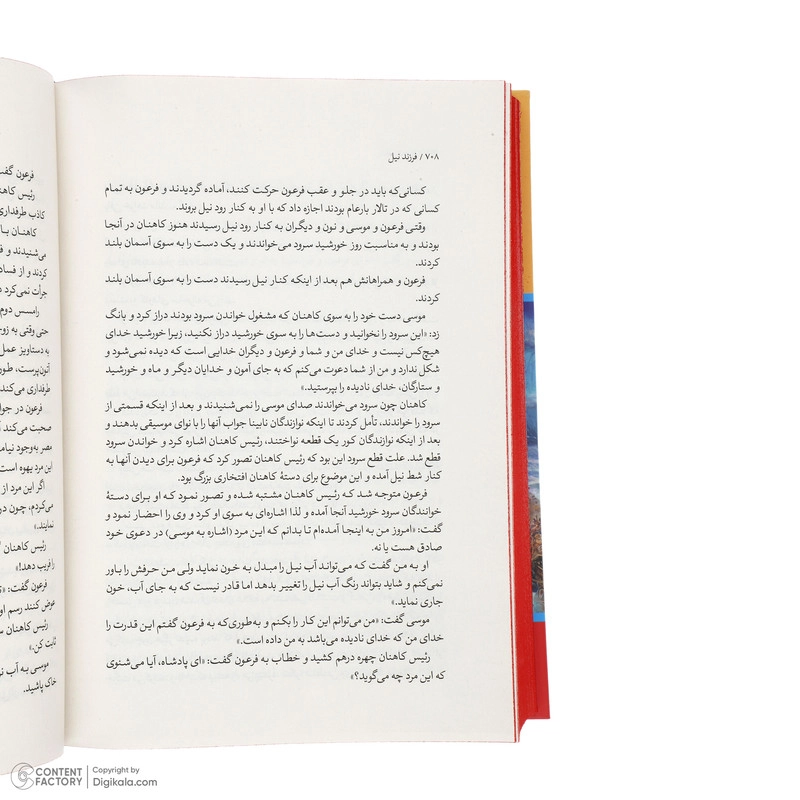 ۷۰۸ / فرزند نیل
کسانی‌که باید در جلو و عقب فرعون حرکت کنند، آماده گردیدند و فرعون به تمام
کسانی که در تالار بارعام بودند اجازه داد که با او به کنار رود نیل بروند.
وقتی فرعون و موسی و نون و دیگران به کنار رود نیل رسیدند هنوز کاهنان در آنجا
بودند و به مناسبت روز خورشید سرود می‌خواندند و یک دست را به سوی آسمان بلند
کردند.
فرعون و همراهانش هم بعد از اینکه کنار نیل رسیدند دست را به سوی آسمان بلند
کردند.
موسی دست خود را به سوی کاهنان که مشغول خواندن سرود بودند دراز کرد و بانگ
زد: «این سرود را نخوانید و دست‌ها را به سوی خورشید دراز نکنید، زیرا خورشید خدای
هیچ‌کس نیست و خدای من و شما و فرعون و دیگران خدایی است که دیده نمی‌شود و
شکل ندارد و من از شما دعوت می‌کنم که به جای آمون و خدایان دیگر و ماه و خورشید
و ستارگان، خدای نادیده را بپرستید.»
کاهنان چون سرود می‌خواندند صدای موسی را نمی‌شنیدند و بعد از اینکه قسمتی از
سرود را خواندند، تأمل کردند تا اینکه نوازندگان نابینا جواب آنها را با نوای موسیقی بدهند و
بعد از اینکه نوازندگان کور یک قطعه نواختند، رئیس کاهنان اشاره کرد و خواندن سرود
قطع شد. علت قطع سرود این بود که رئیس کاهنان تصور کرد که فرعون برای دیدن آنها به
کنار شط نیل آمده و این موضوع برای دستهٔ کاهنان افتخاری بزرگ بود.
فرعون متوجه شد که رئیس کاهنان مشتبه شده و تصور نمود که او برای دستهٔ
خوانندگان سرود خورشید آنجا آمده و لذا اشاره‌ای به سوی او کرد و وی را احضار نمود و
گفت: «امروز من به اینجا آمده‌ام تا بدانم که این مرد (اشاره به موسی) در دعوی خود
صادق هست یا نه.
او به من گفت که می‌تواند آب نیل را مبدل به خون نماید ولی من حرفش را باور
نمی‌کنم و شاید بتواند رنگ آب نیل را تغییر بدهد اما قادر نیست که به جای آب، خون
جاری نماید.»
موسی گفت: «من می‌توانم این کار را بکنم و به‌طوری‌که به فرعون گفتم این قدرت را
خدای من که خدای نادیده می‌باشد به من داده است.»
رئیس کاهنان چهره درهم کشید و خطاب به فرعون گفت: «ای پادشاه، آیا می‌شنوی
که این مرد چه می‌گوید؟»
فرعون گفت
رئیس کاهن
کاذب طرفداری
کاهنان با
می‌شنیدند و ف
کردند و از فساد
جرأت نمی‌کرد د
رامسس دوم
حتی وقتی به زو
به دستاویز عمل
آتون‌پرست، طور
طرفداری می‌کند
فرعون در جوا
صحبت می‌کند آ
مصر به‌وجود نیام
این مرد یهوه است
اگر این مرد از
می‌کردم، چون در
نمایند.»
رئیس کاهنان
را فریب دهد!»
فرعون گفت:
عوض کنند رسم او
رئیس کاهنان س
ثابت کن.»
موسی به آب ن
خاک پاشید.
CONTENT
FACTORY
Copyright by
Digikala.com